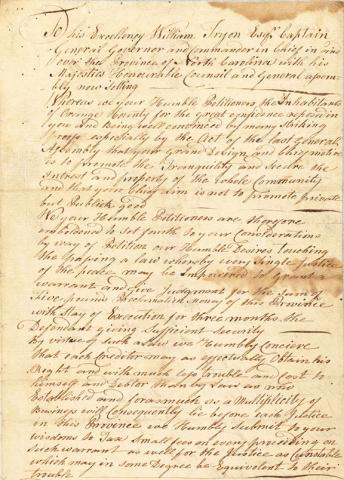 To his Excellency William Tryon Esqr Captain
General Governor and Commander in Chief in and
over the Province of North Carolina with his
Majesties Honourable Counsil and General assem-
bly now Setting
Whereas we your Humble Petitioners the Inhabitants
of Orange County for the great Confidence repos'd in
you and Being well Convinced by many Striking
Proofs especially by the Acts of the last General
Assembly that your Grand Design and Chief motive
is to Promote the Tranquility and Secure the
Intrest and property of the whole Community
and that your Chief Aim is not to promote Private
but Publick good
We your Humble Petitioners are therefore
embolden'd to set fourth to your Considerations
by way of Petition our Humble Desires Touching
the passing a law whereby every Single Justice
of the peace may be Impowered to Grant a
warrant and Give Judgment for the Sum of
Five pounds Proclamation money of this Province
with Stay of Execution for three months the
Defendant giving Sufficient Security
By virtue of such a law we Humbly Conceive
that each Creditor may as effectually Obtain his
Right and with much less Trouble and Cost to
himself and Debtor than by law as now
Established and forasmuch as a Multiplicity of
Business will Consequently lie before each Justice
in this Province we Humbly Submit to your
wisdoms to Tax Small fees on every preceeding on
such warrant as well for the Justice as Constable
which may in some Degree be Equivalent to their
trouble